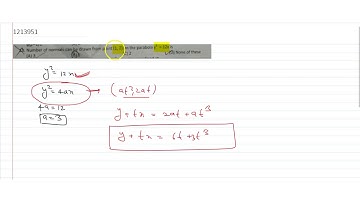 1213951
Number of normals can be drawn from point (1, 2) on the parabola y² = 12x
None of these
y² = 12x
y² = 4ax → (at², 2at)
4a = 12
a = 3
y + tx = 2at + at³
y + tx = 6t + 3t³